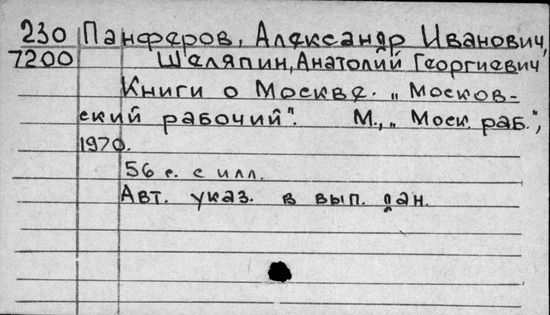 230 Панферов, Александр Иванович,
7200 Шаляпин, Анатолий Георгиевич
Книги о Москве. „Москов-
ский рабочий". М., „Моск. раб.",
1970.
56 с. с илл.
Авт. указ. в вып. дан.